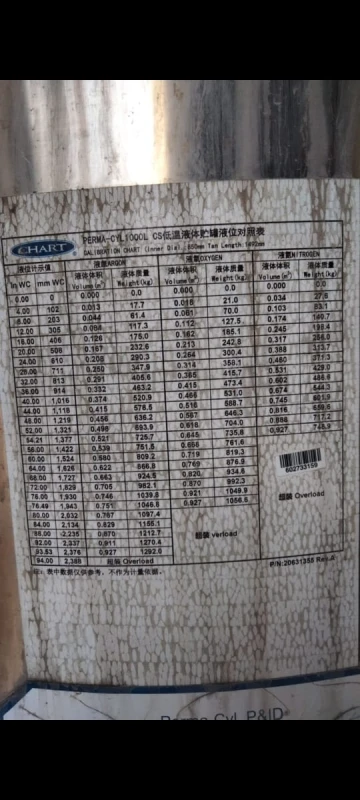 CHART
PERMA-CYL1000L CS低温液体贮罐液位对照表
CALIBRATION CHART (Inner Dia. 850mm Tan Length:1492mm
液位计示值 液氩ARGON 液氧OXYGEN 液氮NITROGEN
In WC mm WC 液体体积 Volume(m³) 液体质量 Weight(kg) 液体体积 Volume(m³) 液体质量 Weight(kg) 液体体积 Volume(m³) 液体质量 Weight(kg)
0.00 0 0.000 0.0 0.000 0.0 0.000 0.0
4.00 102 0.013 17.7 0.018 21.0 0.034 27.8
8.00 203 0.044 61.4 0.061 70.0 0.103
12.00 305 0.084 117.3 0.112 127.5 0.174 140.7
16.00 406 0.126 175.0 0.162 185.1 0.245 198.4
20.00 508 0.167 232.6 0.213 242.8 0.317
24.00 610 0.208 290.3 0.264 300.4 0.388
28.00 711 0.250 347.9 0.314 358.1
32.00 813 0.291 405.6 0.365 415.7 0.531 429.0
36.00 914 0.332 463.2 0.415 473.4 0.602 486.6
40.00 1,016 0.374 520.9 0.466 531.0 0.674 544.3
44.00 1,118 0.415 578.5 0.516 588.7 0.745 601.9
48.00 1,219 0.456 636.2 0.567 646.3 0.816 659.6
52.00 1,321 0.498 693.9 0.618 704.0 0.888 717.2
54.21 1,377 0.521 725.7 0.645 735.8 0.927 748.9
56.00 1,422 0.539 751.5 761.6
60.00 1,524 0.580 809.2 0.719 819.3
64.00 1,626 0.622 866.8 0.769 876.9
68.00 1,727 0.663 924.5 0.820 934.6
72.00 1,829 0.705 982.1 0.870 992.3
76.00 1,930 0.746 1039.8 0.921 1049.9
76.49 1,943 0.751 1046.8 0.927 1056.6
80.00 2,032 0.787 1097.4
84.00 2,134 0.829 1155.1
88.00 2,235 0.870 1212.7
92.00 2,337 0.911 1270.4
93.53 2,376 0.927 1292.6
94.00 2,388 超装 Overload
超装 verload
超装 Overload
602733159
注：表中数据仅供参考，不作为计量依据。
P/N:20631355 Rev.
Perma-Cyl P&ID